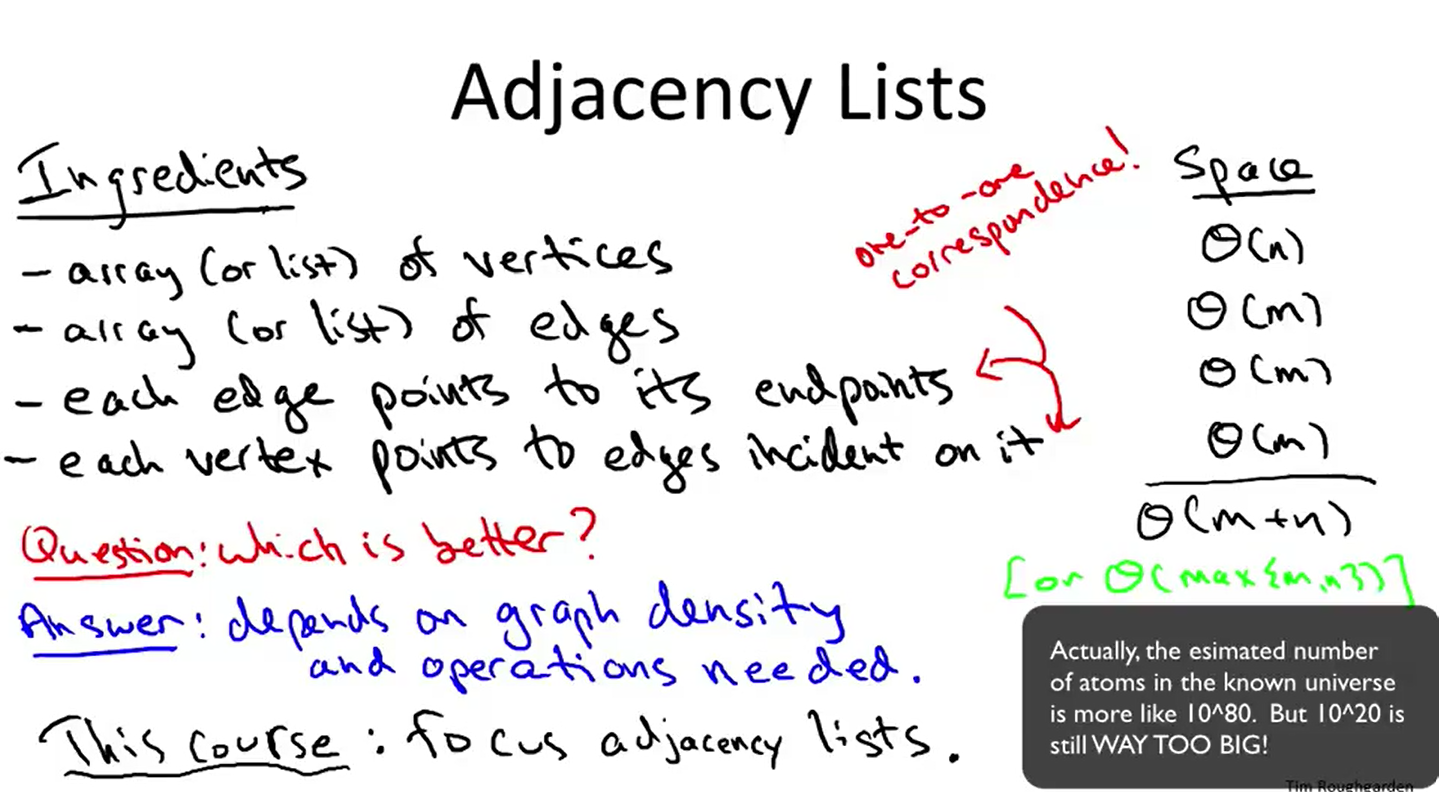 Adjacency Lists
Ingredients
- array (or list) of vertices
- array (or list) of edges
- each edge points to its endpoints
- each vertex points to edges incident on it
one-to-one
correspondence!
Space
Θ(n)
Θ(m)
Θ(m)
Θ(m)
Θ(m+n)
[or Θ(max{m,n})]
Question: which is better?
Answer: depends on graph density
and operations needed.
This course: focus adjacency lists.
Actually, the esimated number
of atoms in the known universe
is more like 10^80. But 10^20 is
still WAY TOO BIG!
Tim Roughgarden